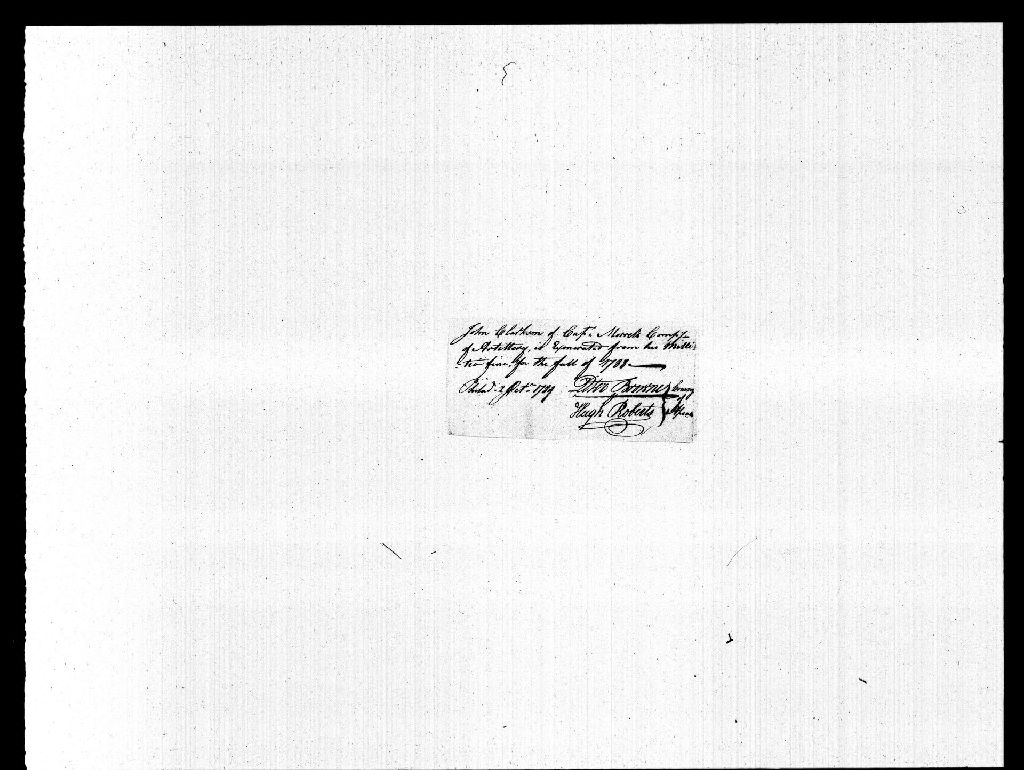 John Clathem of Capt. Morrels Compy
of Artillery, is Exonerated from his Militia
fine for the fall of 1788
Philad. 2 Oct. 1789 Peter Browne
Hugh Roberts of Appeal